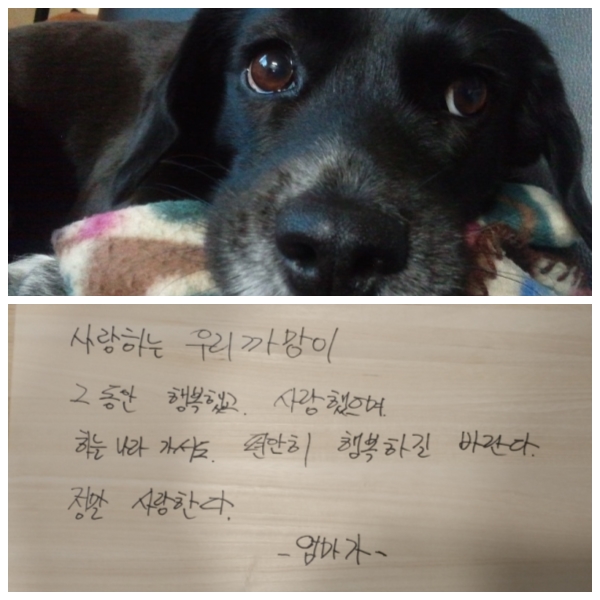 사랑하는 우리 까망이
그 동안 행복했고, 사랑했으며,
하늘나라 가서도 편안히 행복하길 바란다.
정말 사랑한다.
-엄마가-